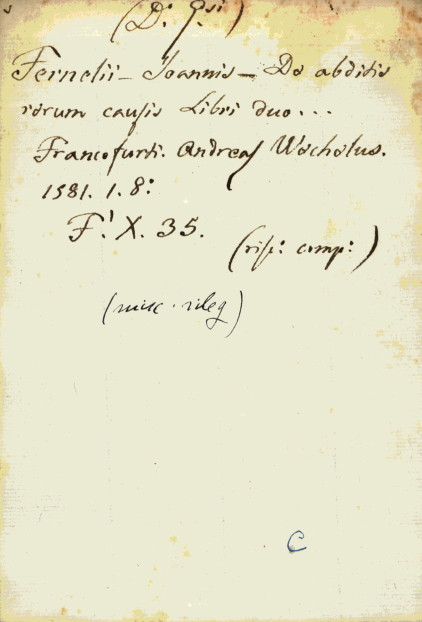 (D: G.si)
Fernelii - Joannis - De abditis
rerum causis Libri duo...
Francofurti. Andreas Wechelus.
1581. 1. 8:
F.' X. 35.
(risp: comp:)
C